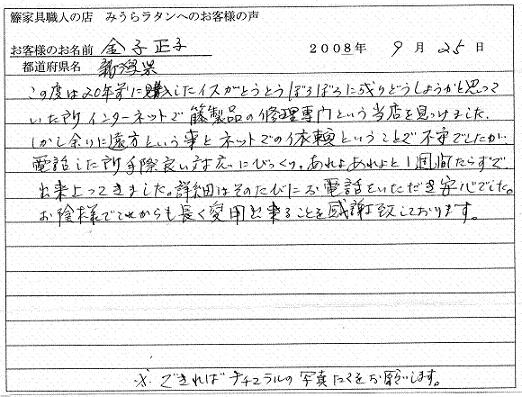 籐家具職人の店　みうらラタンへのお客様の声
お客様のお名前　金子正子　2008年　9月　25日
都道府県名　新潟県
この度は20年前に購入したイスがとうとうぼろぼろに成りどうしようかと思って
いた所インターネットで籐製品の修理専門という当店を見つけました。
しかし余りに遠方という事とネットでの依頼ということで不安でしたが、
電話した所手際良い対応にびっくり。あれよあれよと1週間たらずで
出来上ってきました。詳細はそのたびにお電話をいただき安心でした。
お陰様でこれからも長く愛用出来ることを感謝致しております。
※ できればナチュラルの写真たてをお願いします。